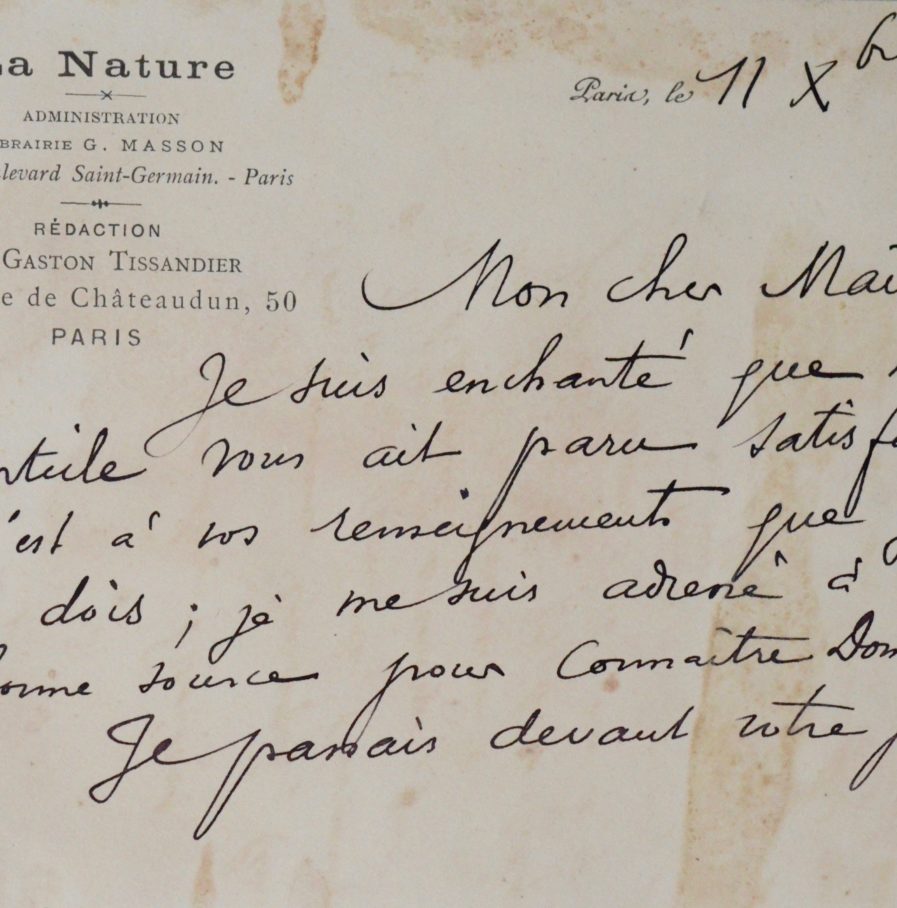 La Nature
ADMINISTRATION
BRAIRIE G. MASSON
levard Saint-Germain. - Paris
RÉDACTION
GASTON TISSANDIER
e de Châteaudun, 50
PARIS
Paris, le 11 Xb
Mon cher Mai
Je suis enchanté que
rticle vous ait paru satisf
'est à vos renseignements que j
dois ; je me suis adressé à
bonne source pour connaître Dom
Je passais devant votre